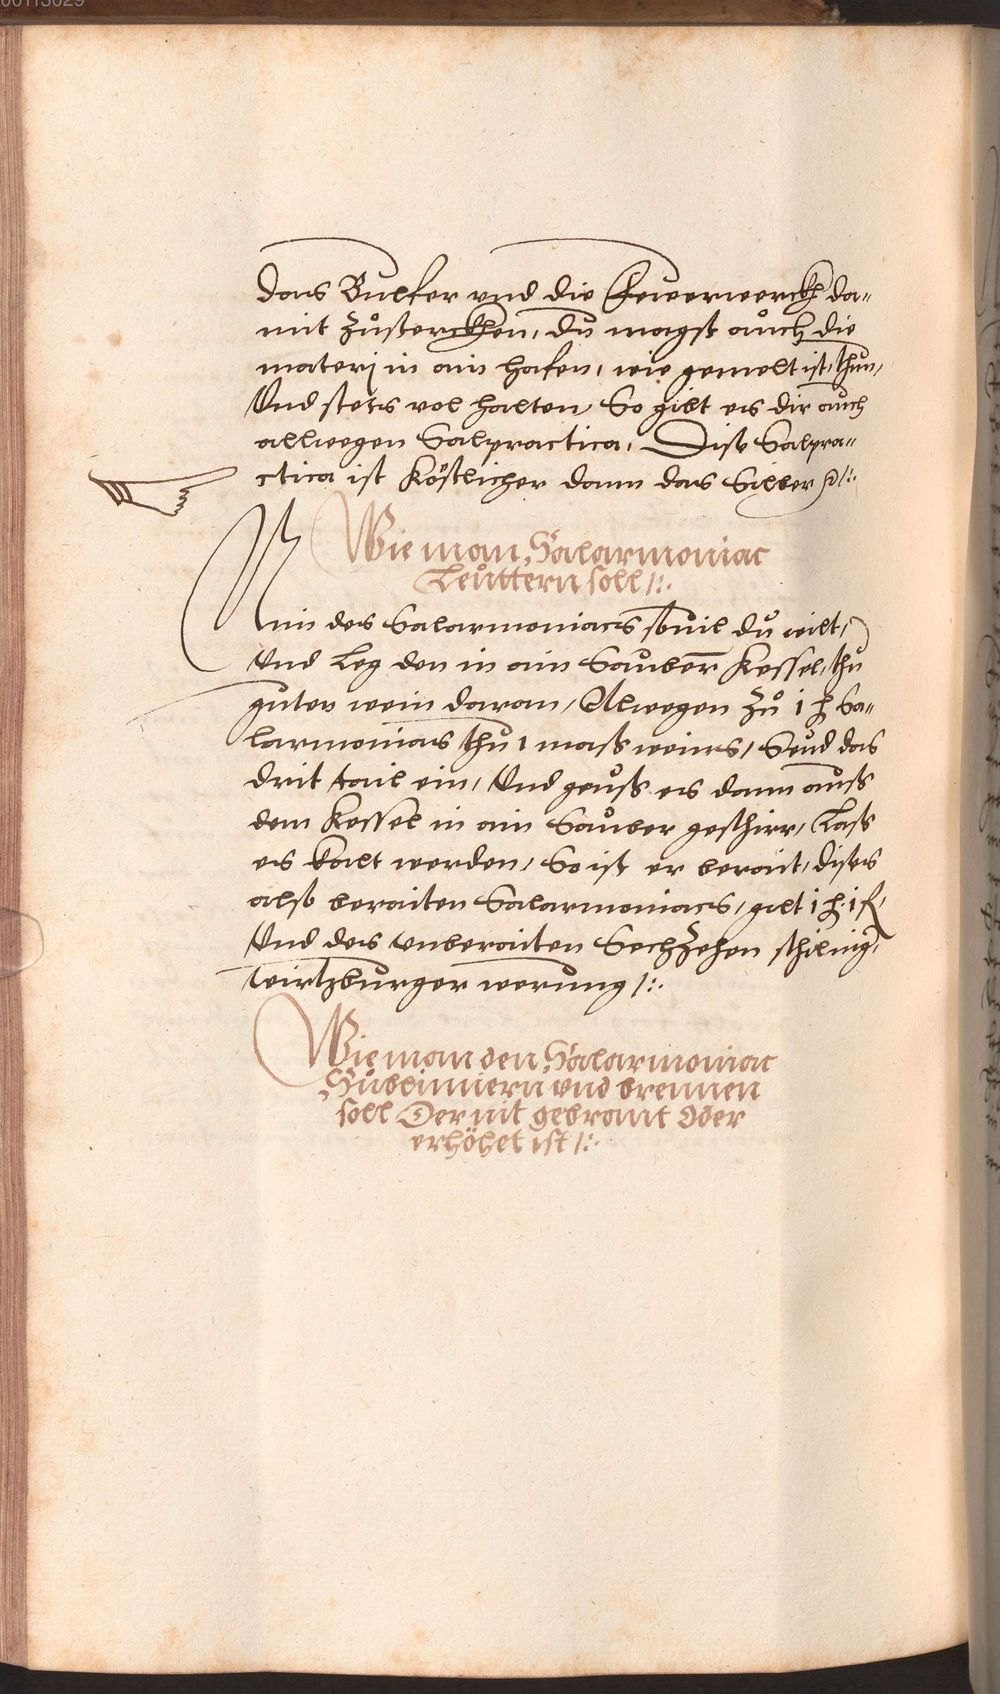 00113029
das Bulfer vnd die Feuerwerckh da=
mit zůsterckhen, du magst aůch die
materj in ain hafen, wie gemelt ist, thun,
Vnd stets vol halten, So gibt es dir auch
allwegen Salpractica, Dise Salpra=
ctica ist Köstlicher dann das Silber
Wie man Salarmoniac
Leüttern soll /:.
Nim des Salarmoniacs souil dů wilt,
Vnd Leg den in ain Saůbern Kessel, thů
guten wein daran, Alwegen zů 1 ℔ Sa=
larmoniacs thů 1 mass weins, Seud das
drit tail ein, Vnd geuss es dann auss
dem Kessel in ain Saůber geschirr, Lass
es kalt werden, So ist er berait, dises
also beraiten Salarmoniacs, gilt 1 ℔ 1 fl,
Vnd des vnberaiten Sechzehen schiling,
wirtzburger werung /:.
Wie man den Salarmoniac
Sůblimiern vnd brennen
soll Der nit gebrant Oder
erhöhet ist /:.